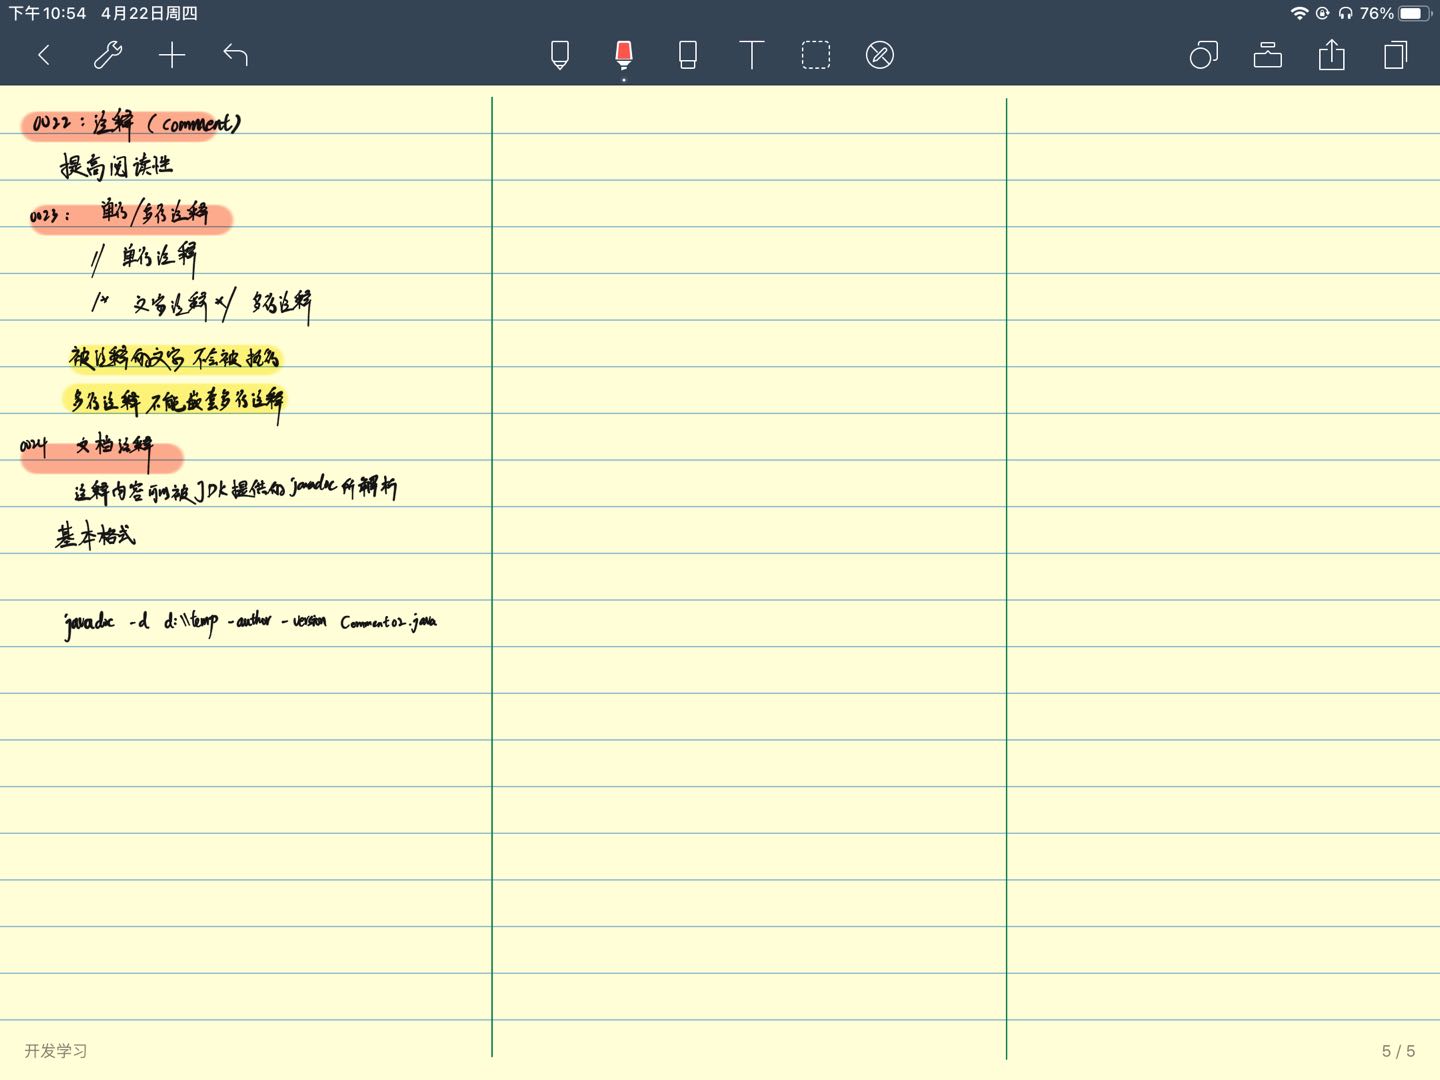 下午10:54 4月22日周四
76%
0022：注释（comment）
提高阅读性
0023： 单行/多行注释
// 单行注释
/* 文字注释 */ 多行注释
被注释的文字 不会被执行
多行注释 不能嵌套多行注释
0024 文档注释
注释内容可以被JDK提供的javadoc所解析
基本格式
javadoc -d d:\\temp -author -version Comment02.java
开发学习
5 / 5